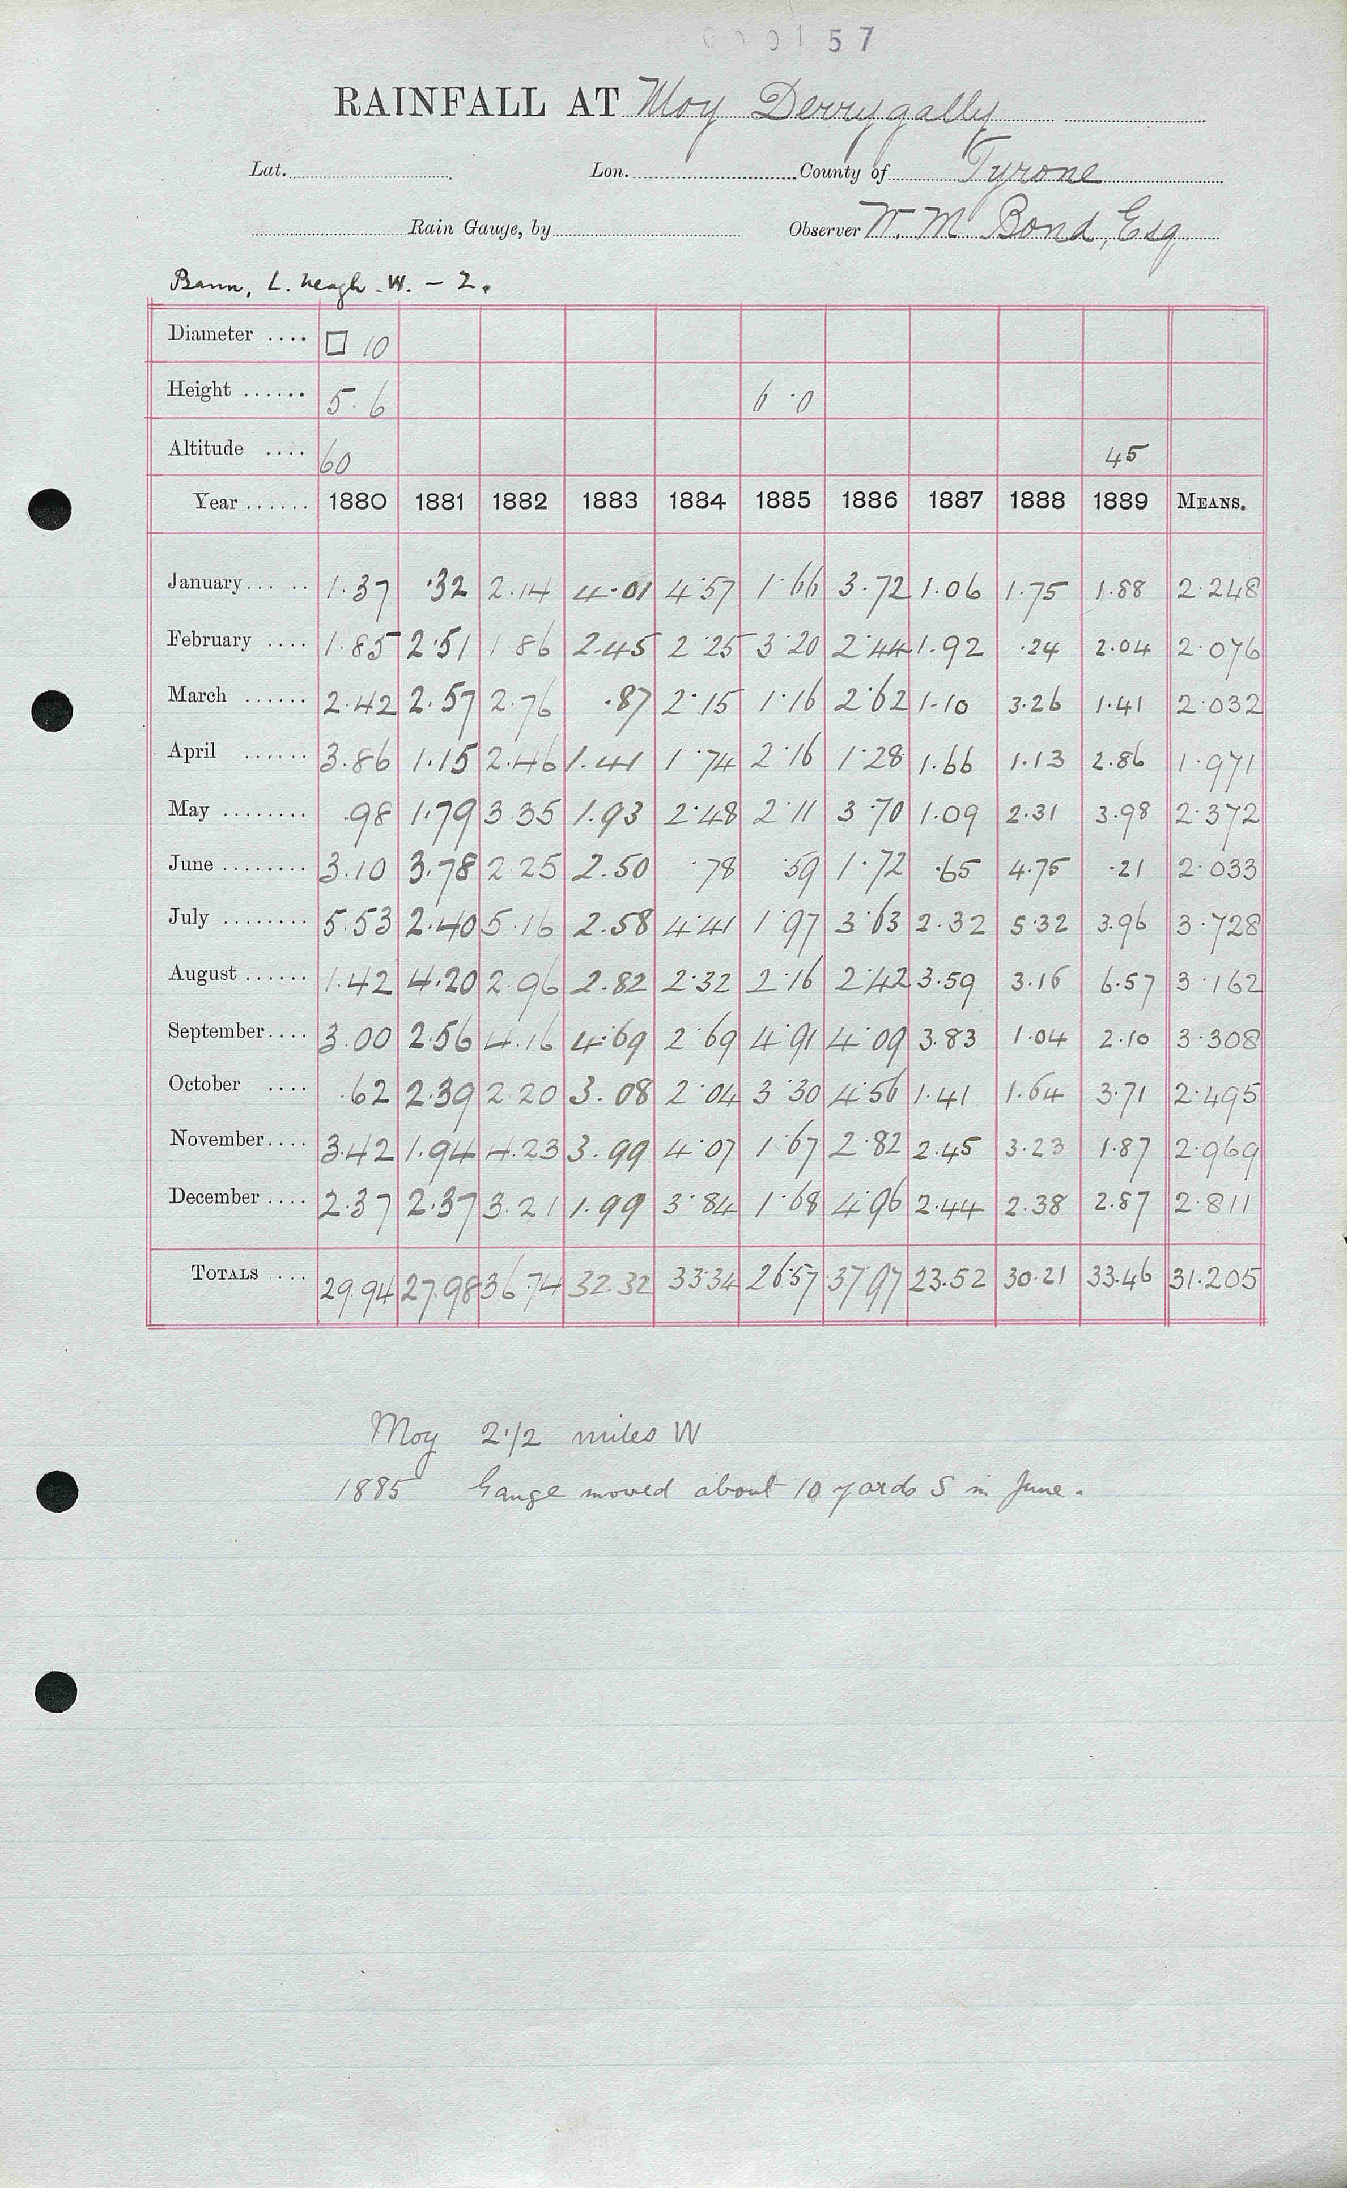 000157
RAINFALL AT Moy Derrygally
Lat. Lon. County of Tyrone
Rain Gauge, by Observer W. M Bond, Esq
Bann, L. Neagh. W. – 2.
Diameter .... □ 10
Height ...... 5.6 6.0
Altitude .... 60 45
Year ...... 1880 1881 1882 1883 1884 1885 1886 1887 1888 1889 MEANS.
January ..... 1.37 .32 2.14 4.01 4.57 1.66 3.72 1.06 1.75 1.88 2.248
February .... 1.85 2.51 1.86 2.45 2.25 3.20 2.44 1.92 .24 2.04 2.076
March ...... 2.42 2.57 2.76 .87 2.15 1.16 2.62 1.10 3.26 1.41 2.032
April ...... 3.86 1.15 2.46 1.41 1.74 2.16 1.28 1.66 1.13 2.86 1.971
May ........ .98 1.79 3.35 1.93 2.48 2.11 3.70 1.09 2.31 3.98 2.372
June ........ 3.10 3.78 2.25 2.50 .78 .59 1.72 .65 4.75 .21 2.033
July ........ 5.53 2.40 5.16 2.58 4.41 1.97 3.63 2.32 5.32 3.96 3.728
August ...... 1.42 4.20 2.96 2.82 2.32 2.16 2.42 3.59 3.16 6.57 3.162
September .... 3.00 2.56 4.16 4.69 2.69 4.91 4.09 3.83 1.04 2.10 3.308
October .... .62 2.39 2.20 3.08 2.04 3.30 4.56 1.41 1.64 3.71 2.495
November .... 3.42 1.94 4.23 3.99 4.07 1.67 2.82 2.45 3.23 1.87 2.969
December .... 2.37 2.37 3.21 1.99 3.84 1.68 4.96 2.44 2.38 2.87 2.811
TOTALS .... 29.94 27.98 36.74 32.32 33.34 26.57 37.97 23.52 30.21 33.46 31.205
Moy 2 1/2 miles W
1885 Gauge moved about 10 yards S in June.